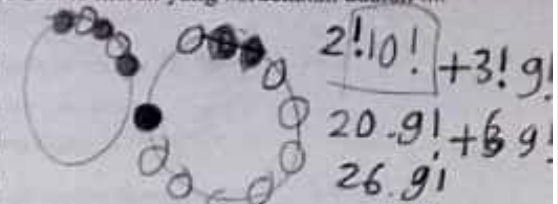 2!10! + 3! 9!
20.9! + 6 9!
26.9!